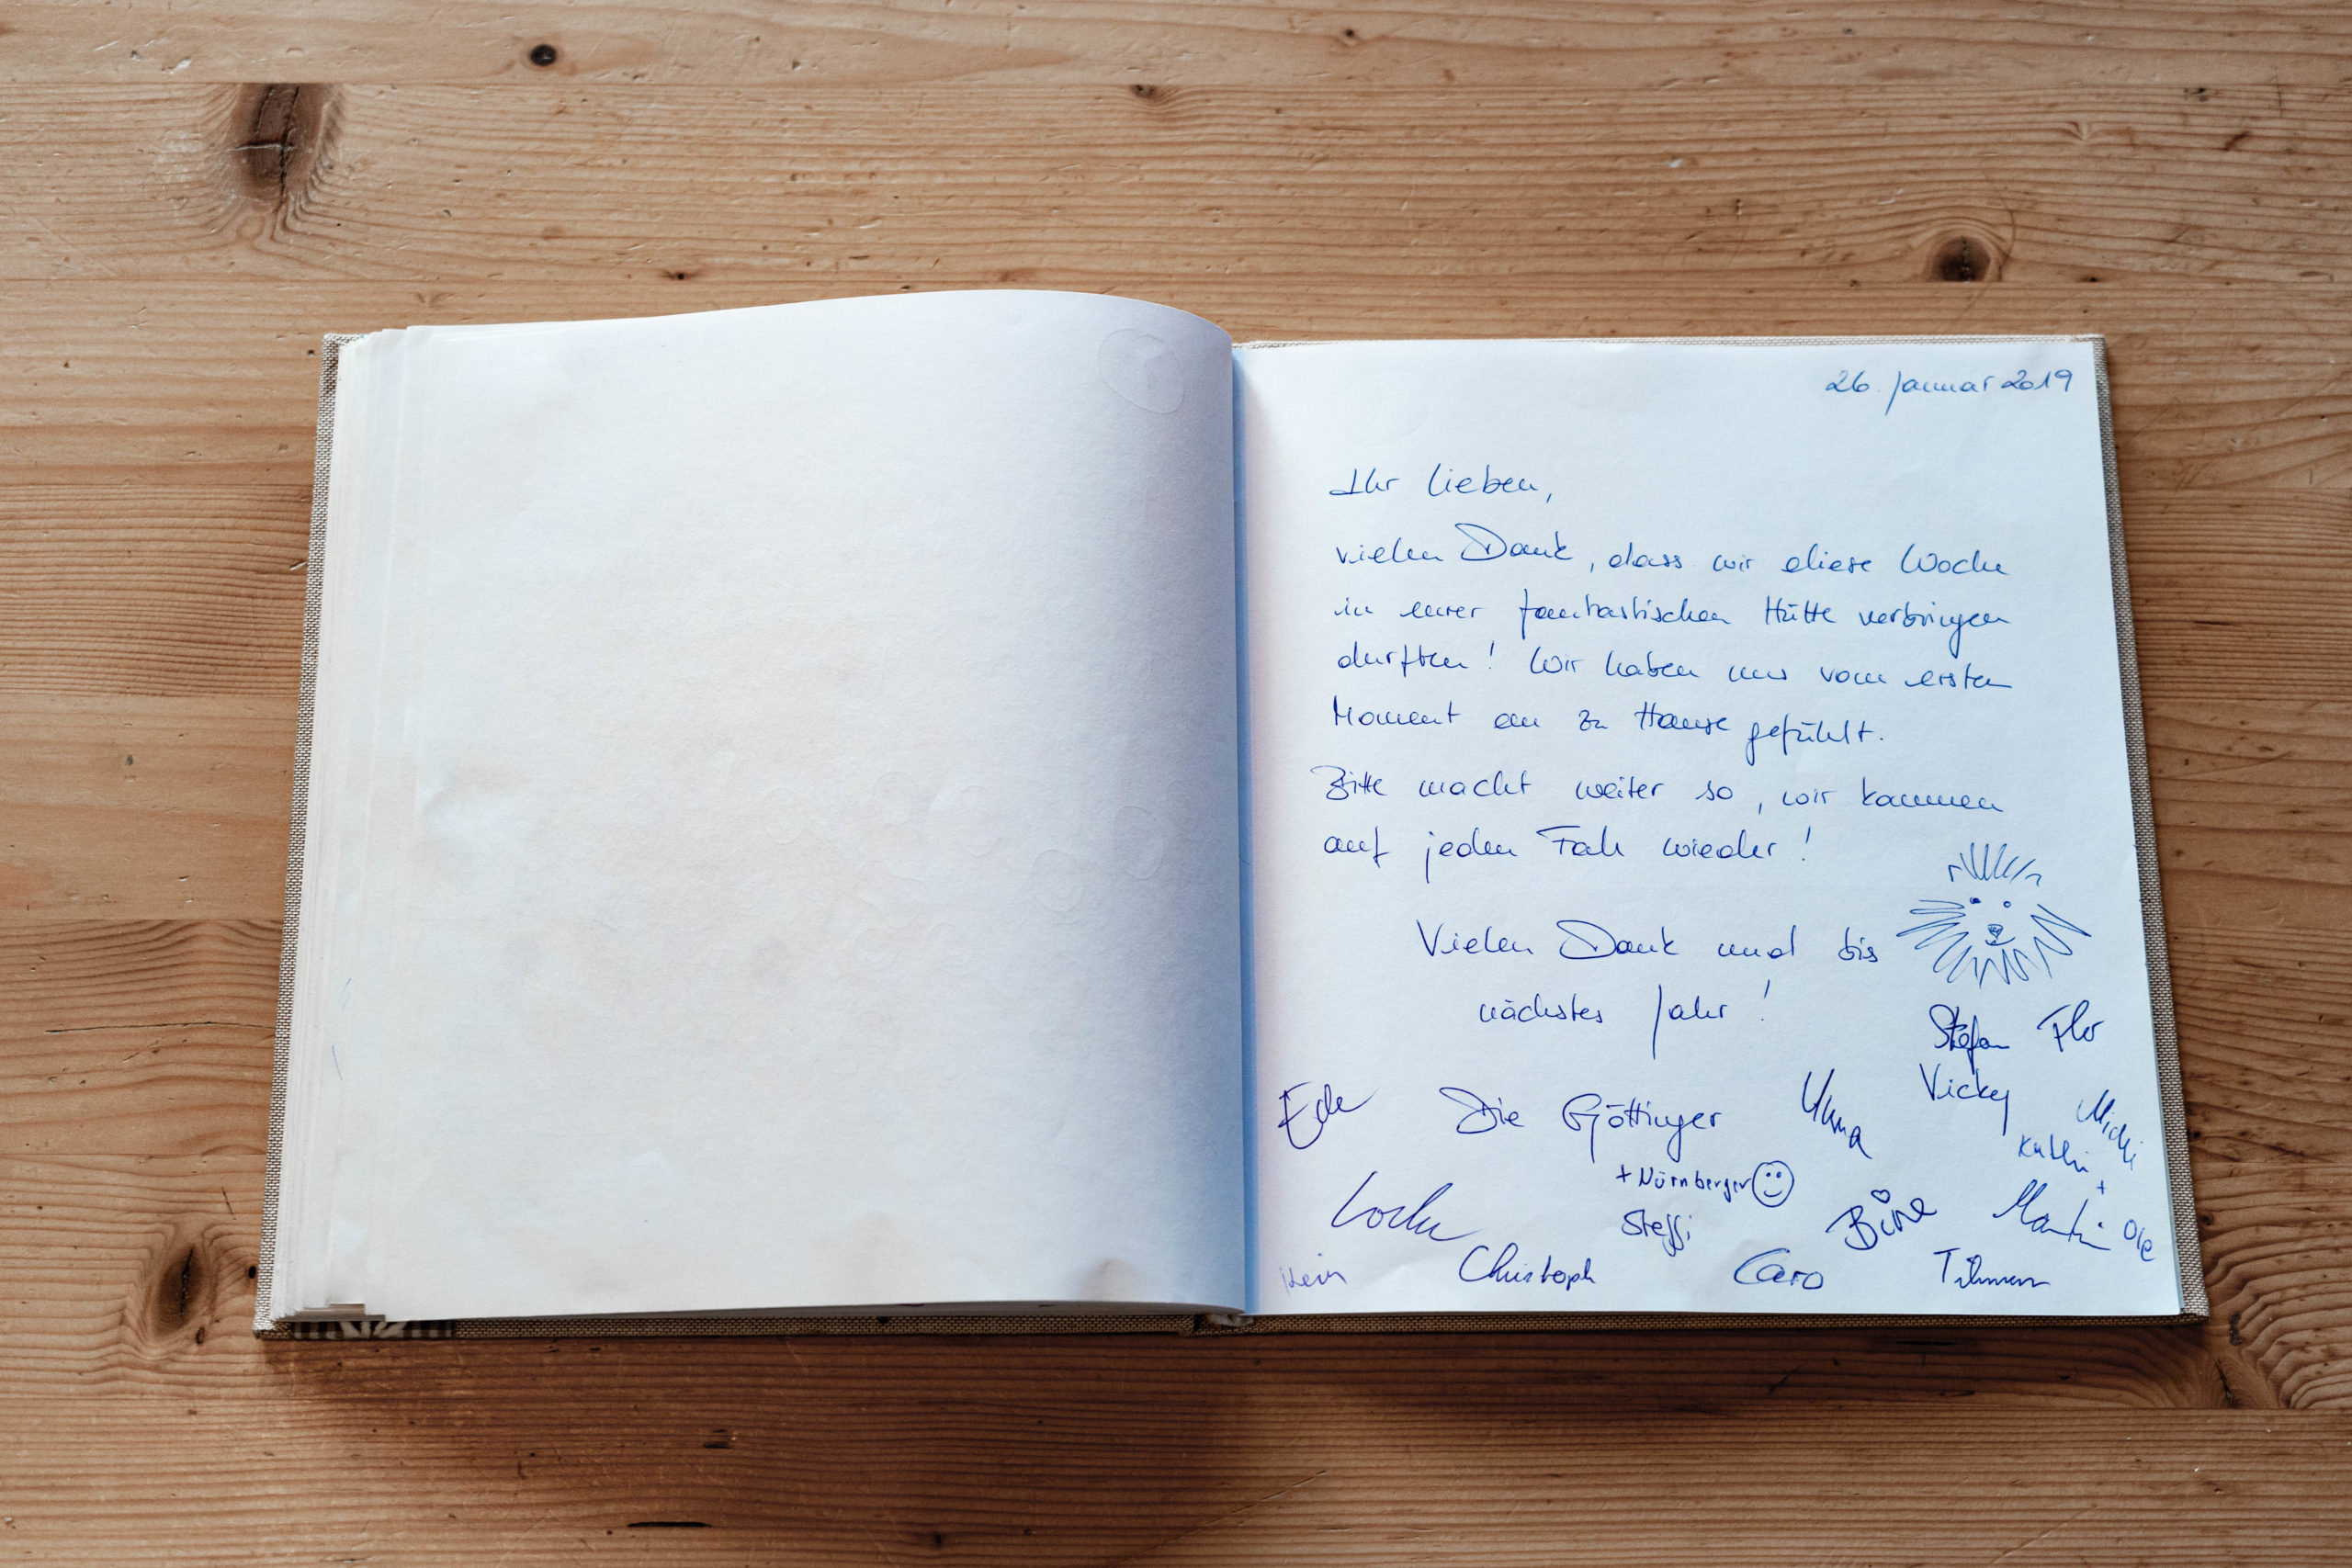 26. Januar 2019
Ihr Lieben,
vielen Dank, dass wir diese Woche
in eurer fantastischen Hütte verbringen
durften! Wir haben uns vom ersten
Moment an zu Hause gefühlt.
Bitte macht weiter so, wir kommen
auf jeden Fall wieder!
Vielen Dank und bis
nächstes Jahr!
Stefan Flo
Vicky
Die Göttinger
Michi
Kathi +
+ Nürnberger
Martin
Ole
Steffi
Bine
Christoph
Caro
Tilmann